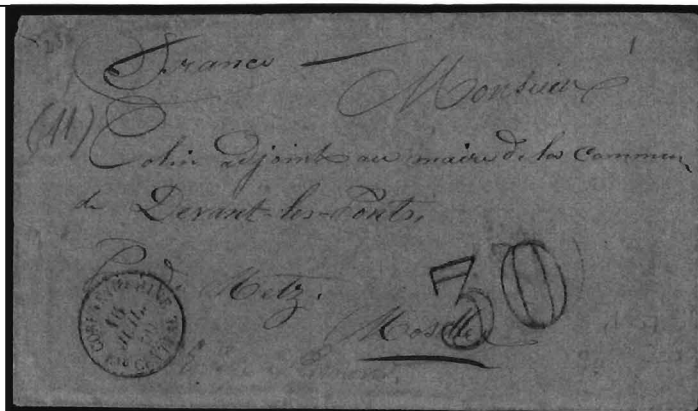 France
Monsieur
(11)
Colin adjoint au maire de la Commun
de Devant-les-Ponts
Metz.
30
Moselle